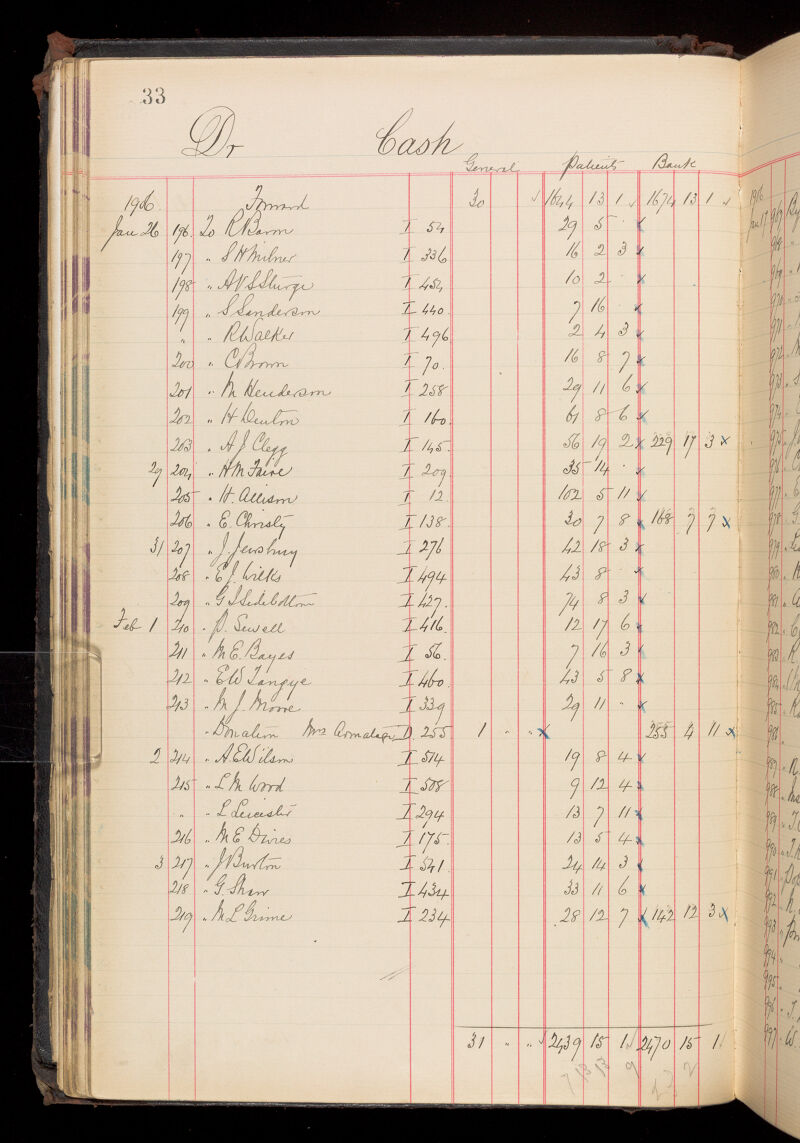 33
Dr Cash
General Patients Bank
1906 Forward 30 1644 13 1 1674 13 1
Jan 26 196 To R Baron I 54 29 5 "
197 " S H Milner I 336 16 2 3
198 " A V S Sturge I 454 10 2 "
199 " S Sanderson I 440 7 16 "
" " R Walker I 496 2 4 3
200 " C Brown I 70 16 8 7
201 " M Henderson I 258 29 11 6
202 " H Denton I 160 61 8 6
203 " A J Clegg I 145 56 19 2 229 17 3
27 204 " H M Faire I 209 35 14 "
205 " H. Allison I 12 102 5 11
206 " E. Christy I 138 30 7 8 168 7 7
31 207 " J. Jewsbury I 276 42 18 3
208 " E J. Wilks I 494 43 8 "
209 " G S Sidebottom I 427 74 8 3
Feb 1 210 " P. Sewell I 416 12 17 6
211 " M E. Bayes I 56 7 16 3
212 " E W Tangye I 460 43 5 8
213 " M J. Moore I 339 29 11 "
" Donation Mrs Armatage D 255 1 " " 255 4 11
2 214 " A E Wilson I 514 19 8 4
215 " L M Wood I 508 9 12 4
" " L Leicester I 294 13 7 11
216 " M E Divies I 175 13 5 4
3 217 " J Burton I 541 24 14 3
218 " G. Shaw I 434 33 11 6
219 " M L Grime I 234 28 12 7 142 12 3
31 " " 2439 15 1 2470 15 1